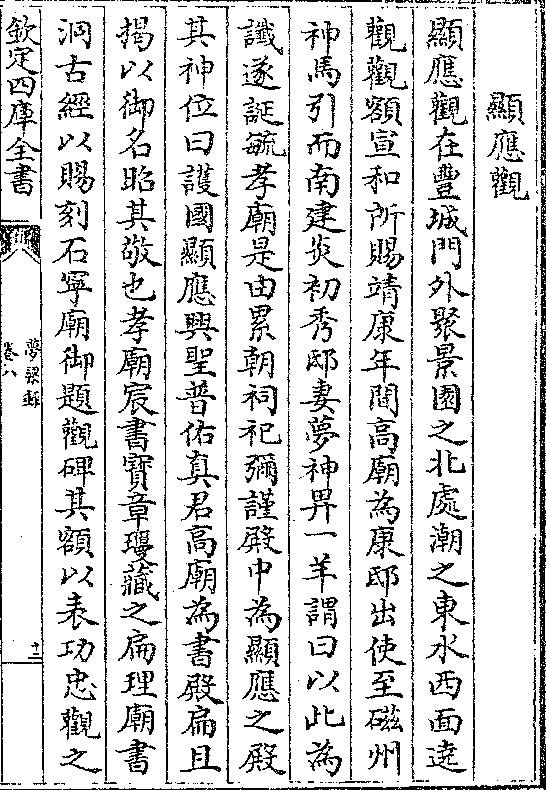 顯應觀
顯應觀在豐城門外聚景園之北處潮之東水西面遶
觀觀額宣和所賜靖康年間高廟為康邸出使至磁州
神馬引而南建炎初秀邸妻夢神畀一羊謂曰以此為
讖遂誕毓孝廟是由累朝祠祀彌謹殿中為顯應之殿
其神位曰護國顯應興聖普佑真君高廟為書殿扁且
揭以御名昭其敬也孝廟宸書寶章瓊藏之扁理廟書
洞古經以賜刻石寧廟御題觀碑其額以表功忠觀之
欽定四庫全書
夢粱錄
卷八
十二